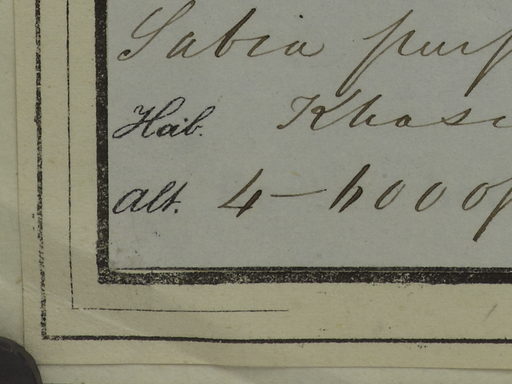 Sabia purp
Hab. Khasi
Alt. 4-6000 f